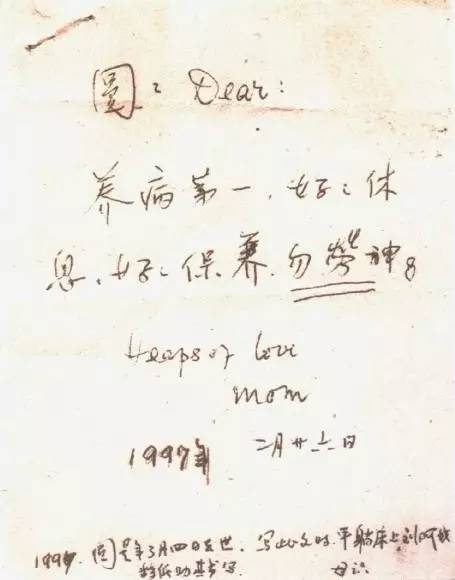 圓〻 Dear:
养病第一,好〻休
息,好〻保养,勿劳神。
Heaps of love
mom
1997年 二月廿六日
1997. 圆是年3月四日去世. 写此文时, 平躺床上, 刘阿
纸助其书写. 母识